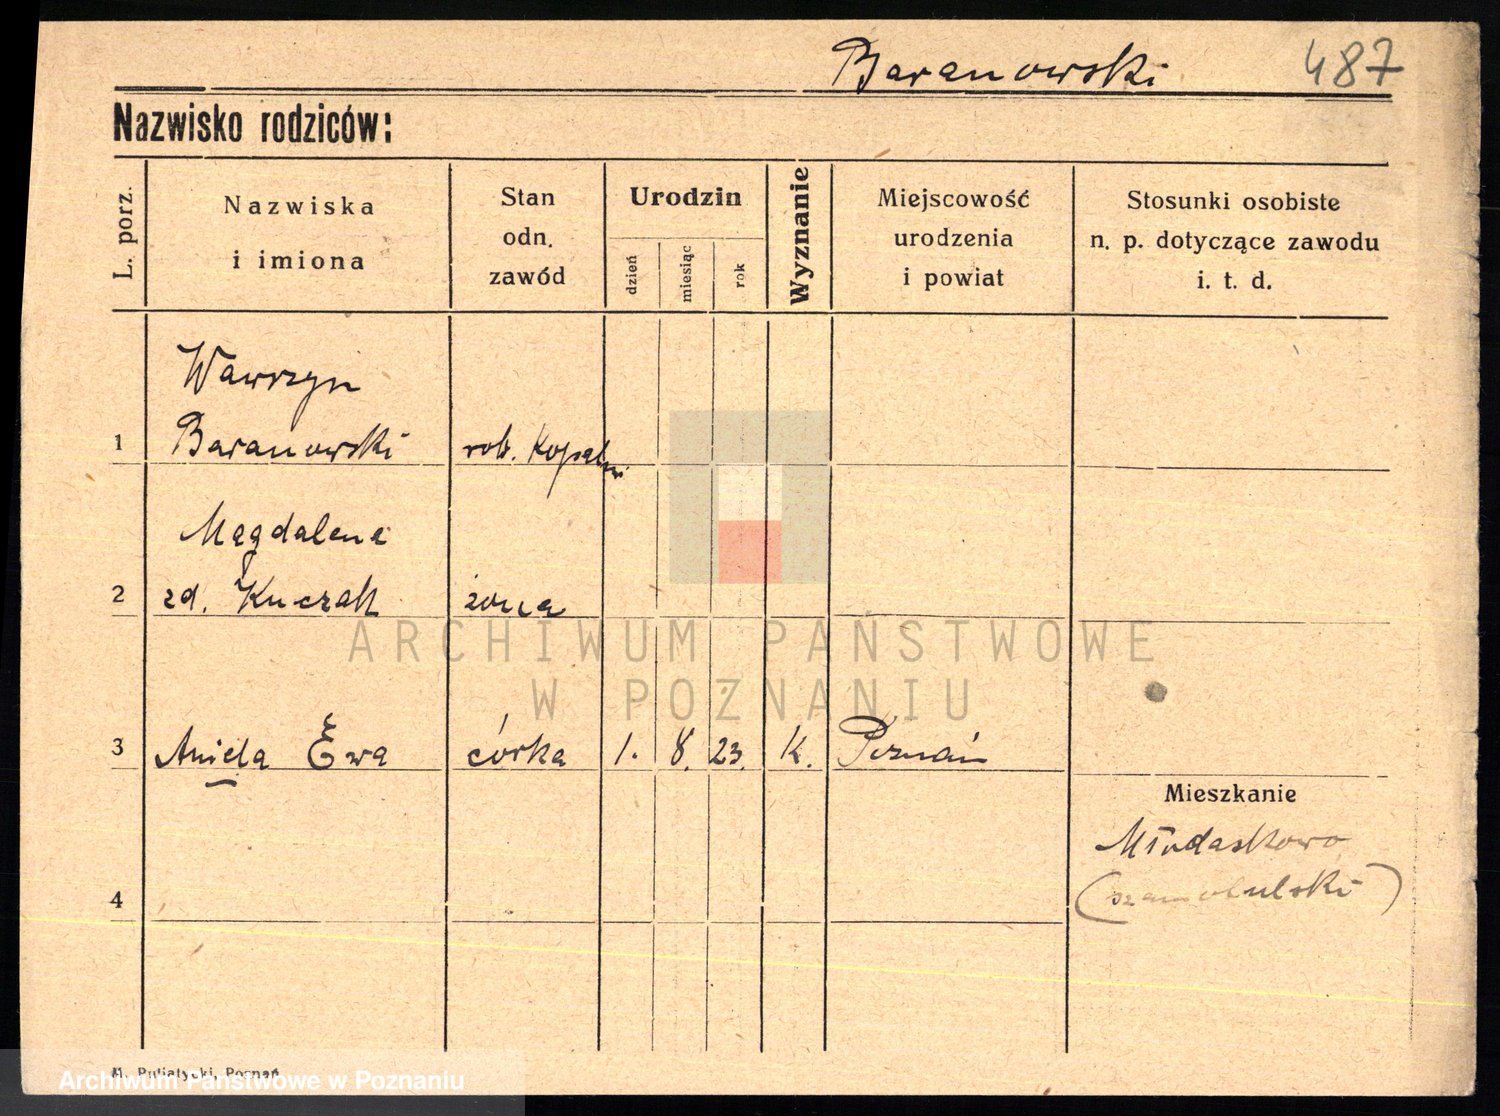 Baranowski 487
Nazwisko rodziców:
L. porz.
Nazwiska
i imiona
Stan
odn.
zawód
Urodzin
dzień
miesiąc
rok
Wyznanie
Miejscowość
urodzenia
i powiat
Stosunki osobiste
n. p. dotyczące zawodu
i. t. d.
Wawrzyn
1 Baranowski rob. Kopalni
Magdalena
2 zd. Kuczak żona
ARCHIWUM PAŃSTWOWE
W POZNANIU
3 Aniela Ewa córka 1. 8. 23. K. Poznań
Mieszkanie
Młodaskowo
4 (szamotulski)
M. Putiatycki, Poznań
Archiwum Państwowe w Poznaniu